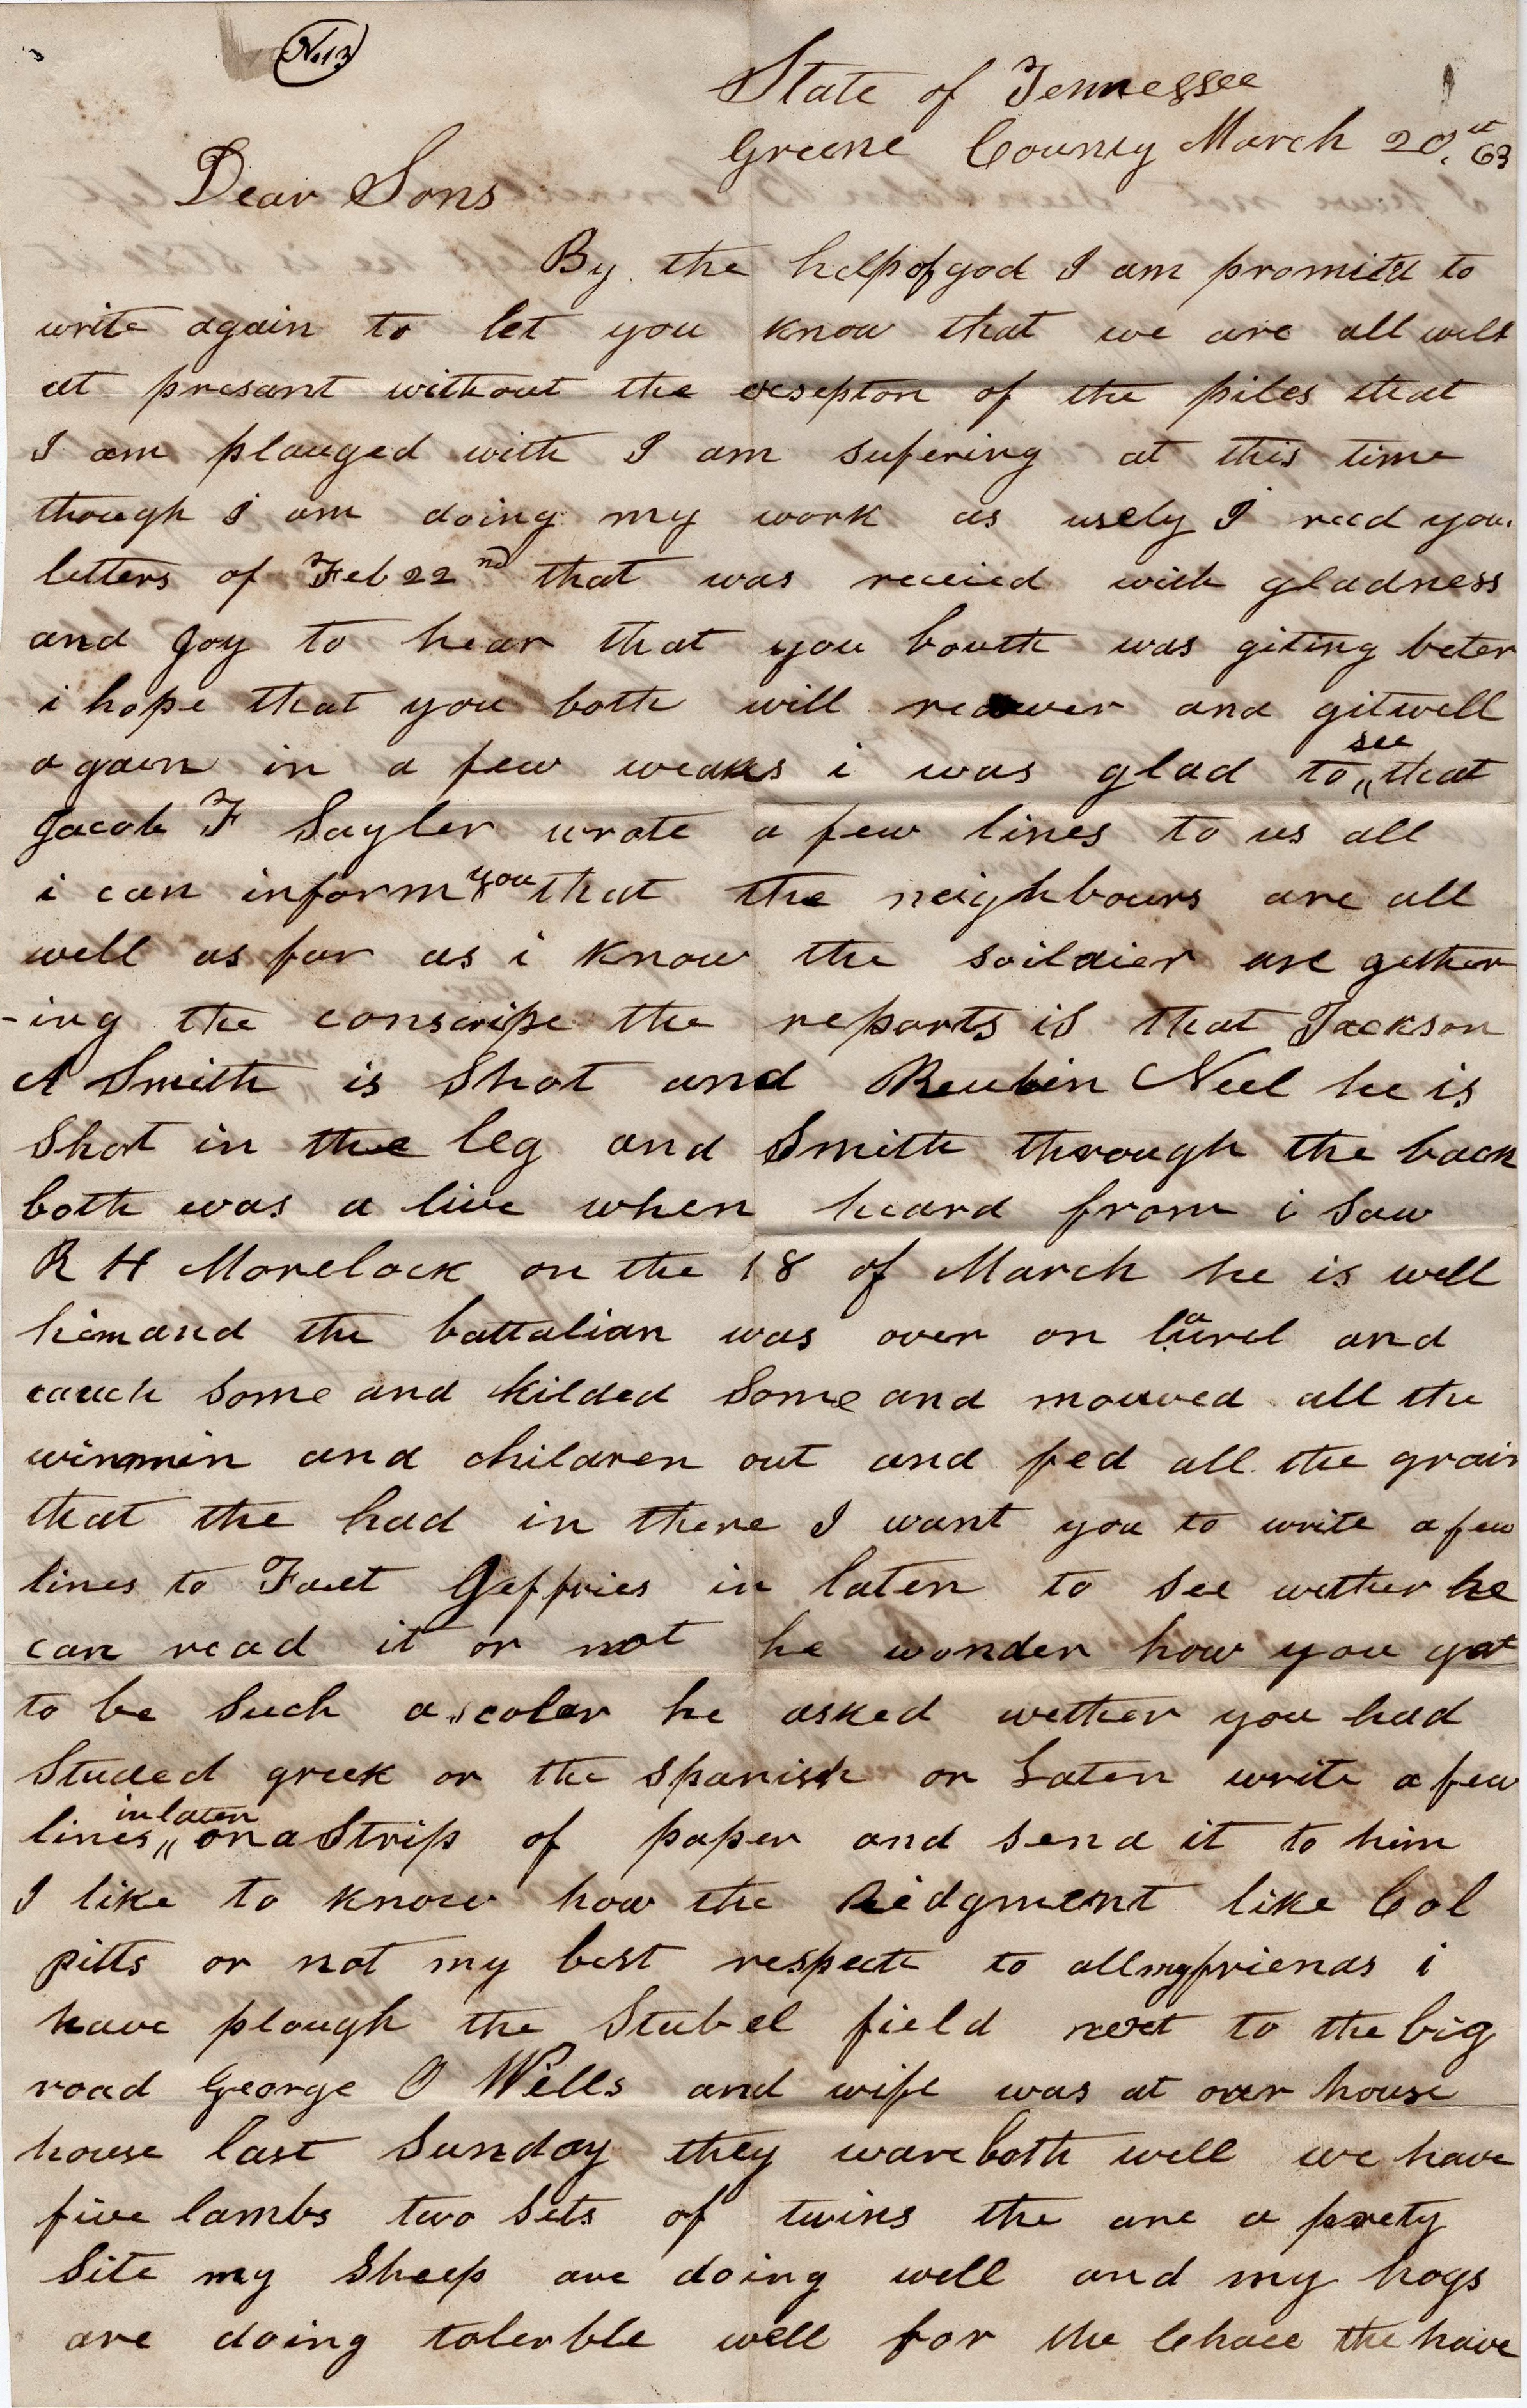 No 13
State of Tennessee
Greene County March 20th 63
Dear Sons
By the help of god I am promited to
write again to let you know that we are all well
at presant without the exsepton of the piles that
I am plauged with I am sufering at this time
though I am doing my work as usely I recd your
letters of Feb 22nd that was receied with gladness
and Joy to hear that you bouth was giting beter
i hope that you both will recover and git well
again in a few weaks i was glad to see that
Jacob F Sayler wrote a few lines to us all
i can inform you that the neighbours are all
well as far as i know the soildier are gether
-ing the conscripe the reports is that Jackson
A Smith is Shot and Reubin Neel he is
Shot in the leg and Smith through the back
both was a live when heard from i Saw
R H Morelock on the 18 of March he is well
him and the battalian was over on laurel and
cauch Some and kilded Some and mouved all the
winmin and children out and fed all the grain
that the had in there I want you to write a few
lines to Faut Jeffries in laten to See wether he
can read it or not he wonder how you got
to be Such a scoler he asked wether you had
Studed greek or the Spanish or Laten write a few
lines in laten on a Strip of paper and send it to him
I like to know how the Ridgment like Col
pitts or not my best respecte to all my friends i
have plough the Stubel field next to the big
road George O Wells and wife was at over house
house last Sunday they ware both well we have
five lambs two Sets of twins the are a prety
Site my Sheep are doing well and my hogs
are doing tolerble well for the Chace the have